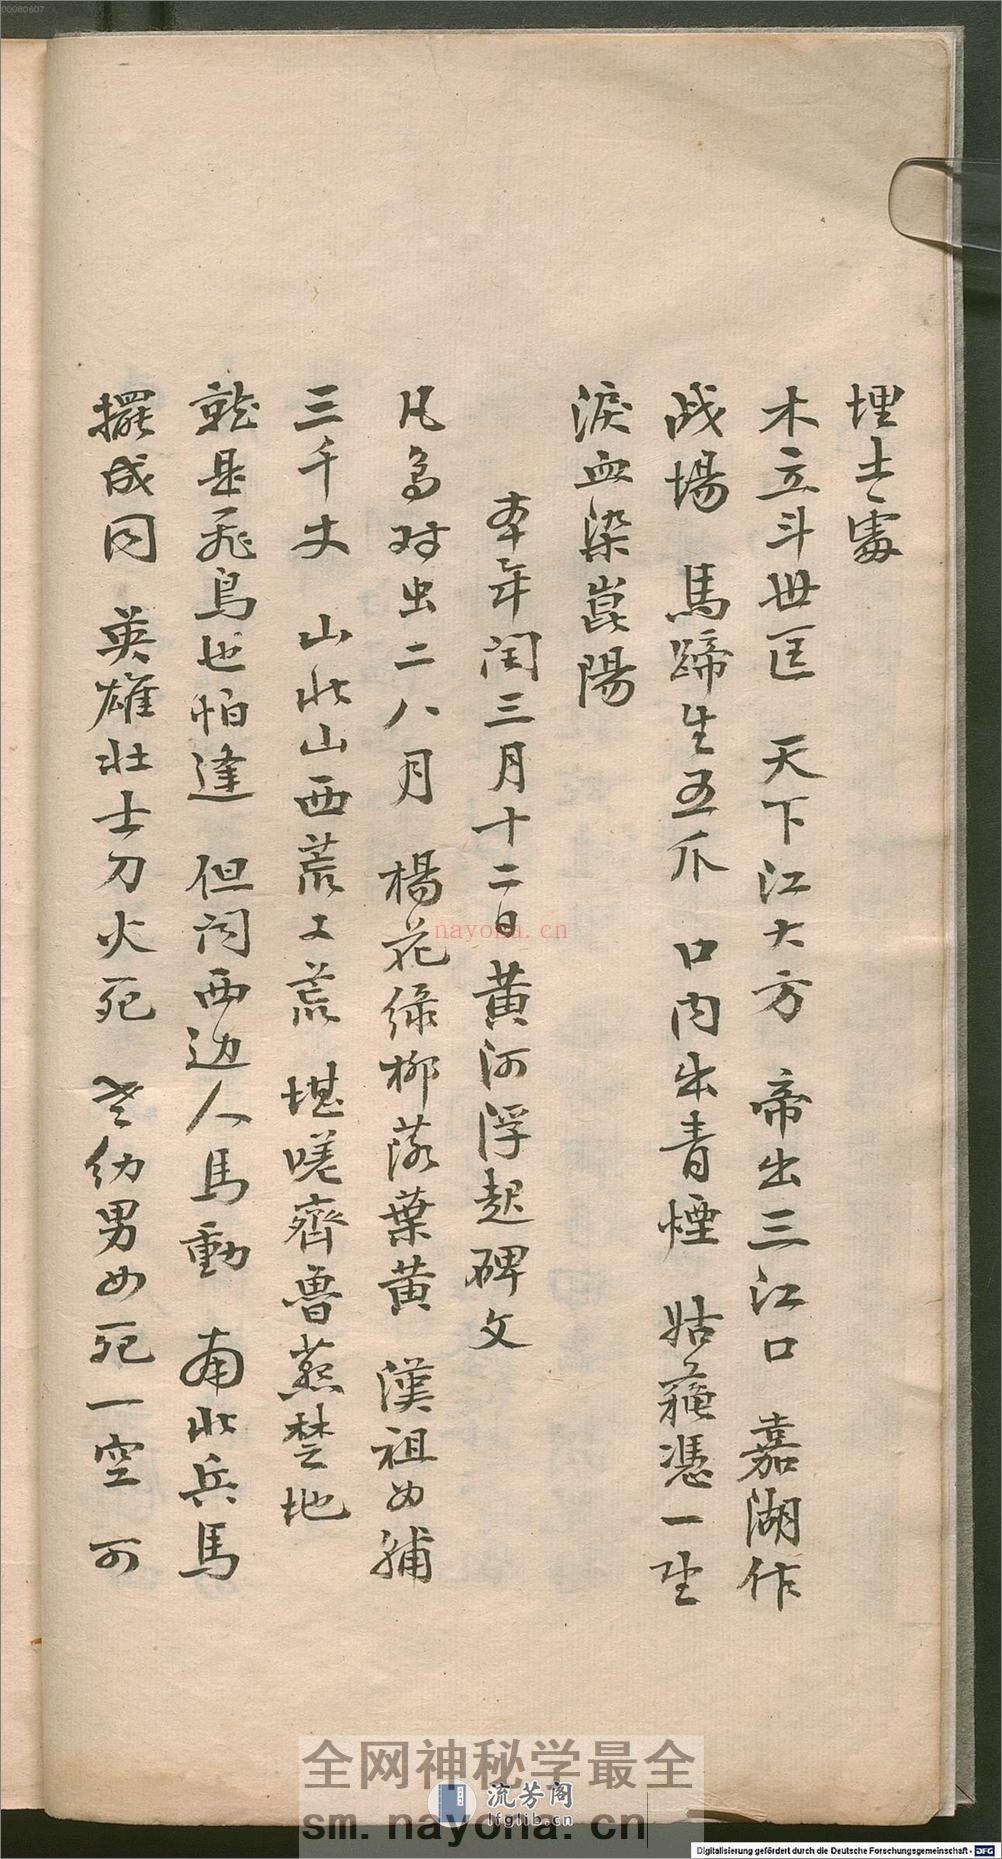 埋士處
木立斗世匡 天下江大方 帝出三江口 嘉湖作
战場 馬蹄生五爪 口内出青煙 姑蘓憑一生
淚血染崑陽
本年闰三月十二日黄河浮起碑文
凡鸟对虫二八月 楊花绿柳落葉黄 漢祖女補
三千丈 山北山西荒又荒 堪嗟齊魯燕楚地
就是飛鳥也怕逢 但闻西边人馬動 南北兵馬
擺成同 英雄壮士刀火死 老幼男女死一空 可
00080607
nayona.cn
全网神秘学最全
流芳阁
lfglib.cn
sm.nayona.cn
Digitalisierung gefördert durch die Deutsche Forschungsgemeinschaft - DFG